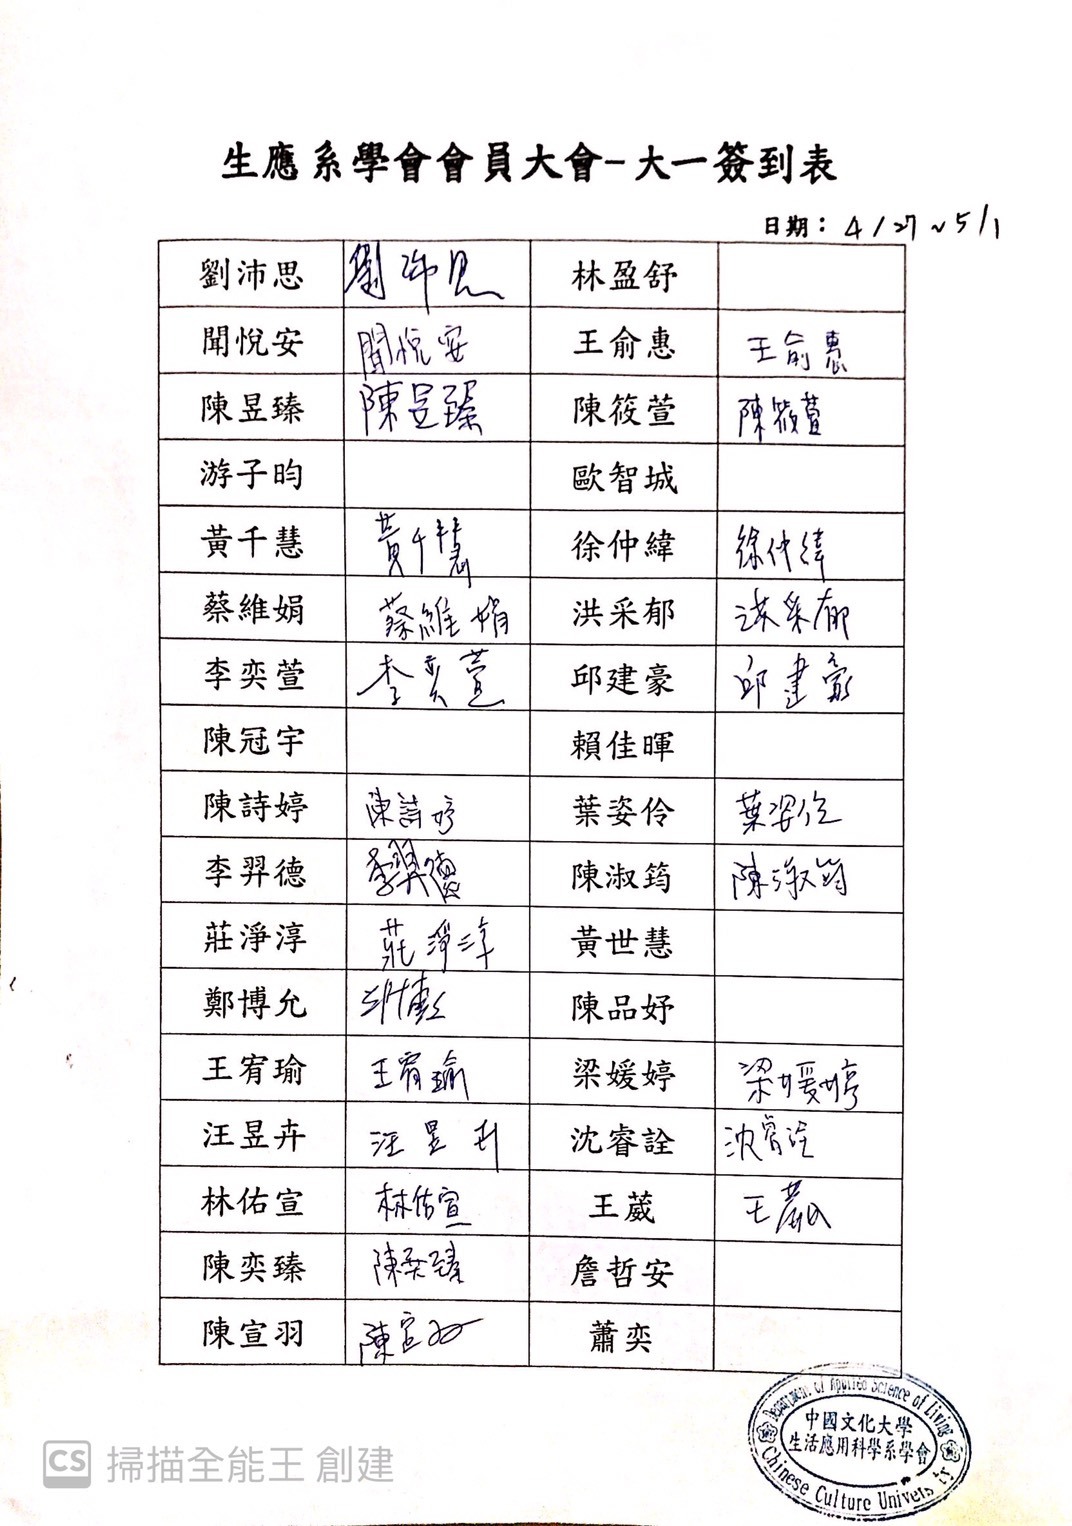 生應系學會會員大會-大一簽到表
日期：4/27~5/1
劉沛思 劉沛思 林盈舒
聞悅安 聞悅安 王俞惠 王俞惠
陳昱臻 陳昱臻 陳筱萱 陳筱萱
游子昀 歐智城
黃千慧 黃千慧 徐仲緯 徐仲緯
蔡維娟 蔡維娟 洪采郁 洪采郁
李奕萱 李奕萱 邱建豪 邱建豪
陳冠宇 賴佳暉
陳詩婷 陳詩婷 葉姿伶 葉姿伶
李羿德 李羿德 陳淑筠 陳淑筠
莊淨淳 莊淨淳 黃世慧
鄭博允 陳品妤
王宥瑜 王宥瑜 梁媛婷 梁媛婷
汪昱卉 汪昱卉 沈睿詮 沈睿詮
林佑宣 林佑宣 王葳 王葳
陳奕臻 陳奕臻 詹哲安
陳宣羽 陳宣羽 蕭奕
Department of Applied Science of Living
中國文化大學
生活應用科學系學會
Chinese Culture University
CS 掃描全能王 創建